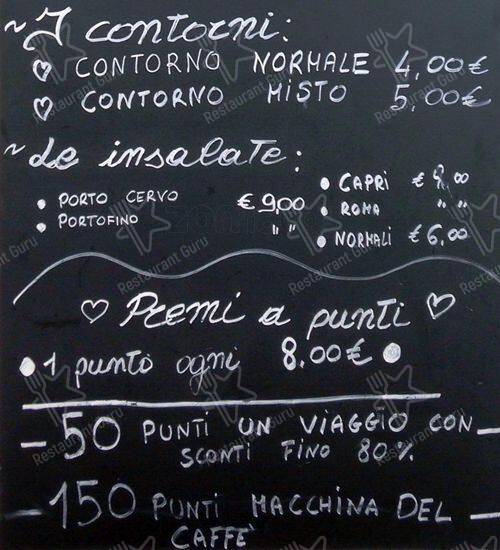 ~ I contorni:
♡ CONTORNO NORMALE 4,00€
♡ CONTORNO MISTO 5,00€
~ Le insalate:
• PORTO CERVO €9,00
• PORTOFINO " "
• CAPRI €
• ROMA " "
• NORMALI €6,00
♡ Premi a punti ♡
• 1 punto ogni 8.00€ •
- 50 PUNTI UN VIAGGIO CON -
SCONTI FINO 80%
- 150 PUNTI MACCHINA DEL -
CAFFE'
Restaurant Guru